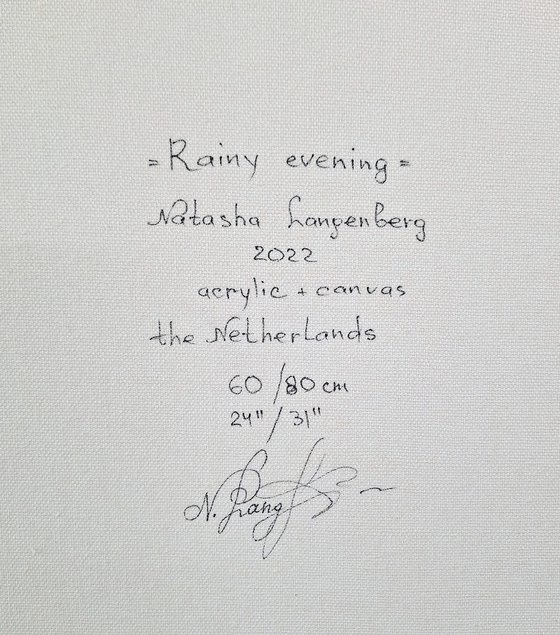 = Rainy evening =
Natasha Langenberg
2022
acrylic + canvas
the Netherlands
60/80 cm
24"/31"
N. Lang